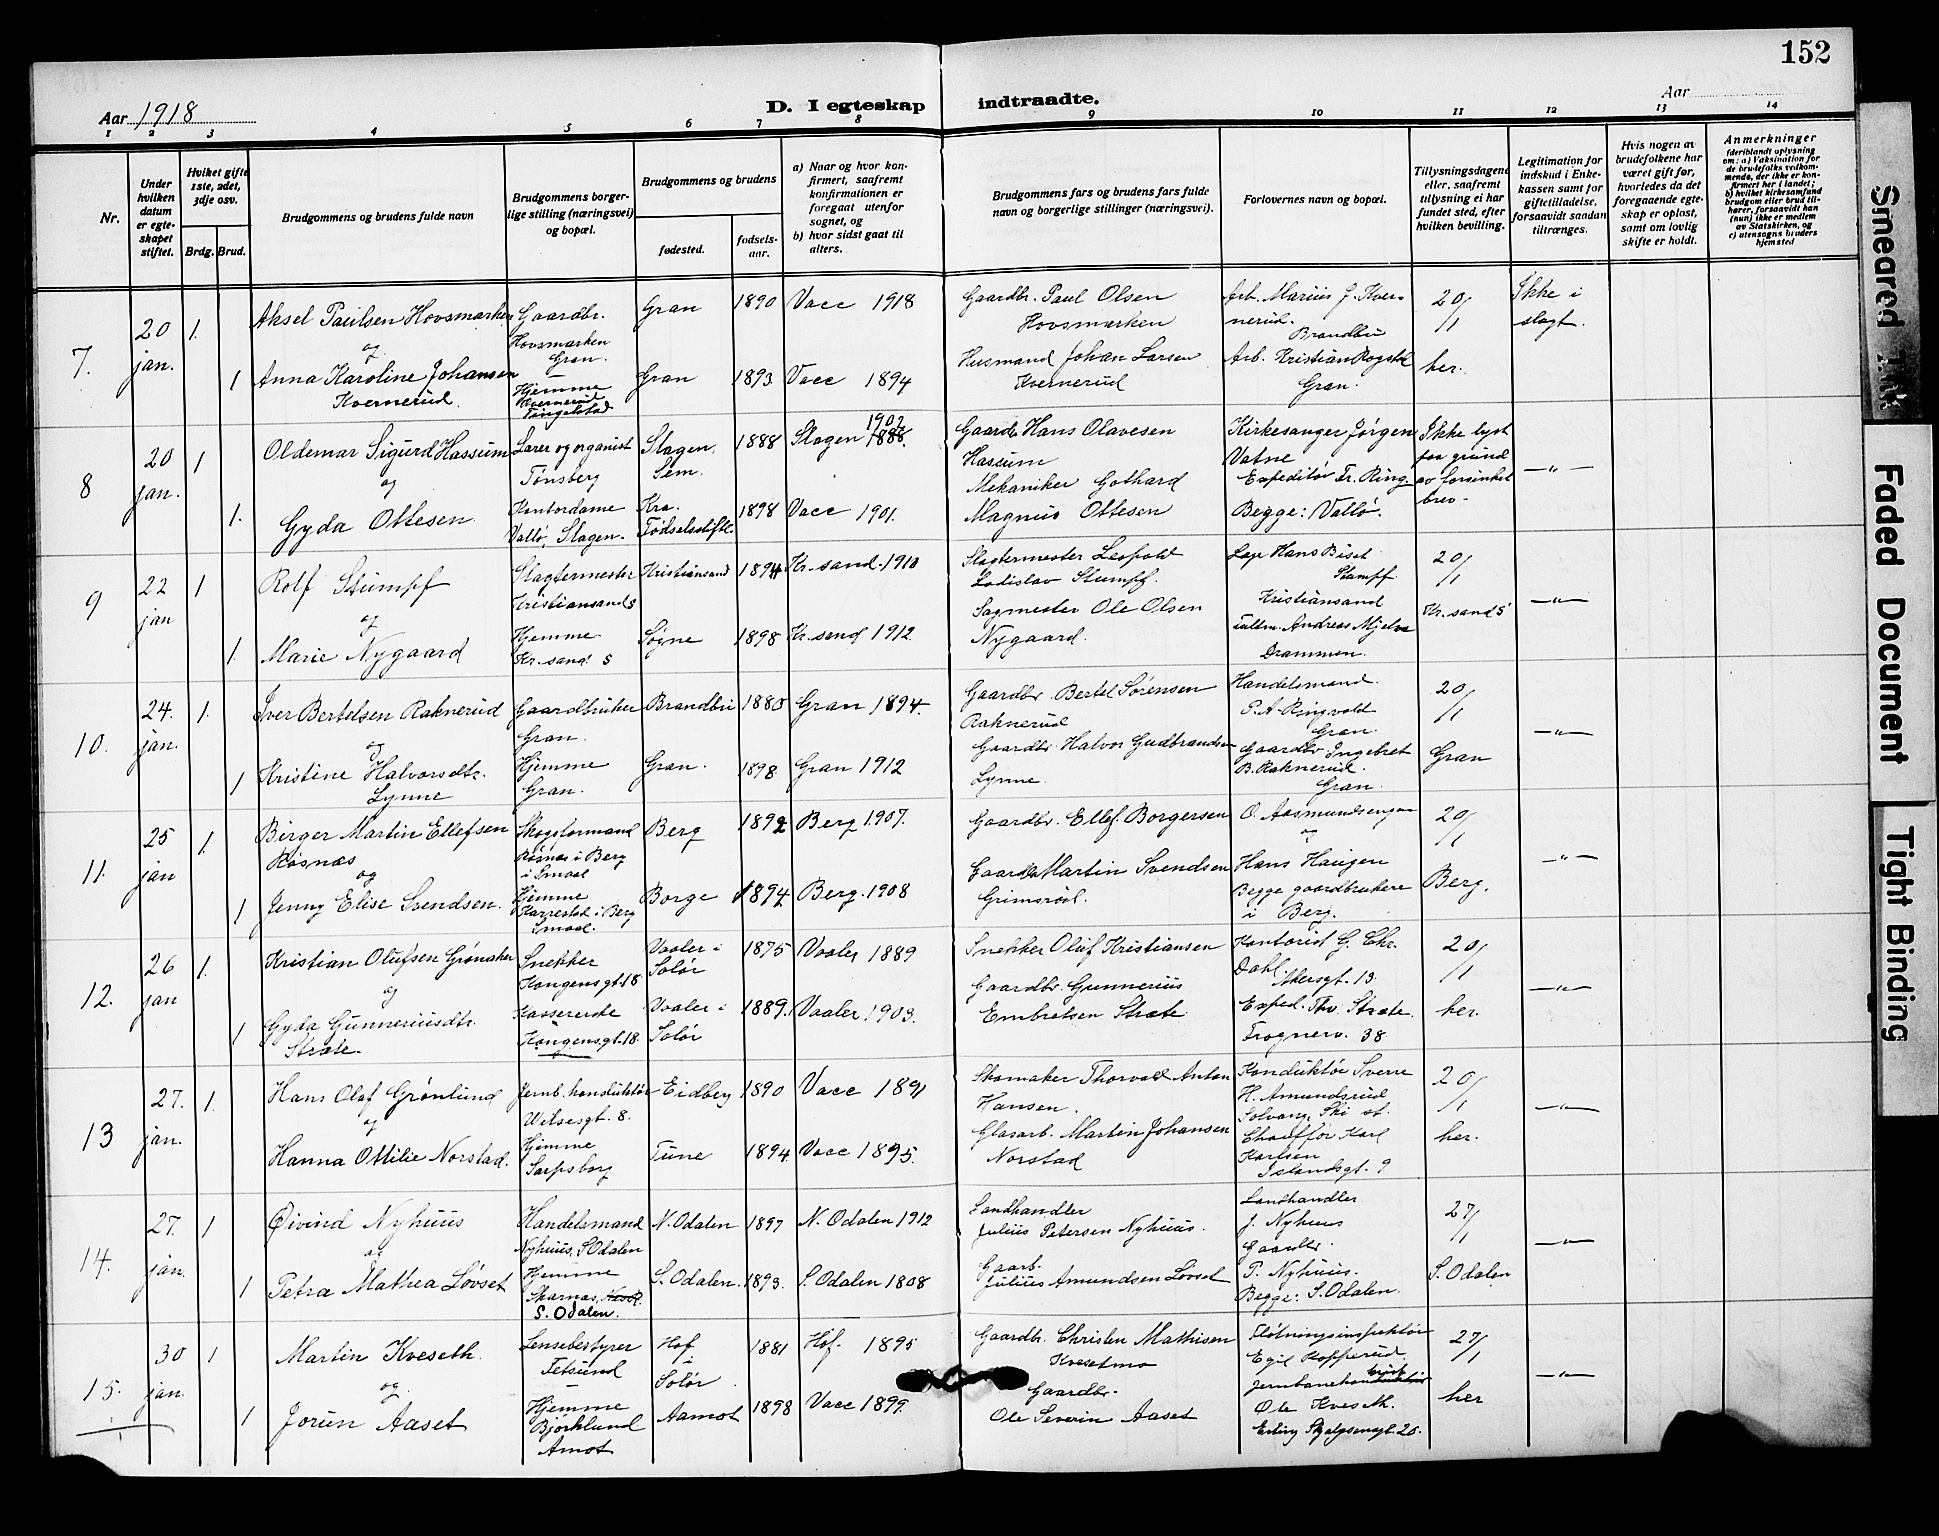 152
Aar 1918
D. I egteskap indtraadte.
Aar
1 2 3 4 5 6 7 8 9 10 11 12 13 14
Nr.
Under hvilken datum er egteskapet stiftet.
Hviket gifte 1ste, 2det, 3dje osv.
Brdg. Brud.
Brudgommens og brudens fulde navn
Brudgommens borgerlige stilling (næringsvei) og bopæl.
Brudgommens og brudens
fødested.
fødselsaar.
a) Naar og hvor konfirmert, saafremt konfirmationen er foregaat utenfor sognet, og
b) hvor sidst gaat til alters.
Brudgommens fars og brudens fars fulde navn og borgerlige stillinger (næringsvei).
Forlovernes navn og bopæl.
Tillysningsdagene eller, saafremt tillysning ei har fundet sted, efter hvilken bevilling.
Legitimation for indskud i Enkekassen samt for giftetilladelse, forsaavidt saadan tiltrænges.
Hvis nogen av brudefolkene har været gift før, hvorledes da det foregaaende egteskap er opløst, samt om lovlig skifte er holdt.
Anmerkninger (deriblandt oplysning om: a) Vaksination for de brudefolks vedkommende, der ikke er konfirmert her i landet; b) hvilket kirkesamfund brudgom eller brud tilhører, forsaavidt han (hun) ikke er medlem av Statskirken, og c) utensogns bruders hjemsted
7. 20 jan. 1. Aksel Paulsen Hovsmarken Gaardbr. Hovsmarken Gran. Gran 1890 Vacc 1918 Gaardbr. Paul Olsen Hovsmarken Arb. Marius J. Kvernerud. Brandbu 20/1 Ikke i slagt.
og
1 Anna Karoline Johansen Kvernerud. Hjemme Kvernerud Tingelstad Gran 1893 Vacc 1894 Husmand Johan Larsen Kvernerud Arb. Kristian Rogstad Gran. her.
8 20 jan. 1 Oldemar Sigurd Hassum Lærer og organist Tønsberg Slagen, Sem. 1888 Slagen 1902 1888. Gaardb. Hans Olavesen Hassum Kirkesanger Jørgen Vatne Ikke lyst paa grund av forsinket brev. -"-
og
1. Gyda Ottesen Kontordame Vallø, Slagen. Kra. Fødselsstift. 1898 Vacc 1901. Mekaniker Gothard Magnus Ottesen Expeditør Fr. Ring. Begge: Vallø.
9 22 jan 1 Rolf Stumpf Slagtermester Kristiansand S Kristiansand 1894 Kr.sand. 1910 Slagtermester Leopold Ladislav Stumpf. Hans Biset Stumpf Kristiansand 20/1 -"-
og
1. Marie Nygaard Hjemme Kr.sand S Søgne 1898 Kr.sand 1912 Sagmester Ole Olsen Nygaard. Andreas Mjelva Drammen. Kr.sand S
10. 24. jan. 1. Iver Bertelsen Raknerud Gaardbruker Gran. Brandbu 1880 Gran 1894. Gaardbr. Bertel Sørensen Raknerud Handelsmand. P. A. Ringvold Gran. 20/1 -"-
og
1 Kristine Halvorsdtr. Lynne Hjemme Gran. Gran. 1898 Gran 1912 Gaardbr. Halvor Gudbrandsen Lynne. Gaardbr. Ingebret B. Raknerud. Gran. Gran
11. 25 jan 1. Birger Martin Ellefsen Røsnæs Skogsformand Røsnæs i Berg i Smaal Berg 1892 Berg 1907. Gaardbr. Ellef Borgersen O. Aasmundsengen og 20/1 -"-
og
1 Jenny Elise Svendsen. Hjemme Karrestad i Berg Smaal. Borge 1894 Berg. 1908 Gaardbr Martin Svendsen Grimsrød. Hans Haugen Begge gaardbrukere i Berg. Berg.
12. 26 jan 1. Kristian Olufsen Grønaker Snekker Kongensgt. 18 Vaaler i Solør 1875 Vaaler 1889 Snekker Oluf Kristiansen G. Chr. Dahl. Akersgt. 13 20/1 -"-
og
1 Gyda Gunneriusdtr. Stræte. Kassererske Kongensgt. 18. Vaaler i Solør 1889. Vaaler 1903. Gaardbr. Gunnerius Embretsen Stræte Exped. Thv. Stræte. Frognerv. 38 her.
13 27. jan. 1. Hans Olaf Grønlund Jernb. konduktør Wilsesgt. 8. Eidberg 1890 Vacc 1891 Skomaker Thorvald Anton Hansen. Konduktør Sverre H. Amundsrud Solvang, Ski st. 20/1 -"-
og
Hanna Ottilie Norstad. Hjemme Sarpsborg Tune 1894. Vacc 1895. Glasarb. Martin Johansen Norstad Chauffør Karl Karlsen Islandsgt. 9 her.
14. 27. jan. 1 Øivind Nyhuus Handelsmand Nyhuus, S. Odalen N. Odalen 1897 N. Odalen 1912 Landhandler Julius Petersen Nyhuus. Landhandler J. Nyhuus 27/1 -"-
og
1 Petra Mathea Løvset Hjemme Skarnæs, S. Odalen. S. Odalen. 1893. S. Odalen 1808 Gaarb. Julius Amundsen Løvset Gaardbr. P. Nyhuus. Begge: S. Odalen. S. Odalen
15. 30 jan. 1 Martin Kveseth. Lensebestyrer Fetsund Hof i Solør 1881 Hof. 1895 Gaardbr. Christen Mathisen Kvesetmo Fløtningsinspektør Egil Kopperud. 27/1 -"-
og
1 Jorun Aaset Hjemme Bjørklund Åmot Aamot 1898 Vacc 1899. Gaardbr. Ole Severin Aaset Ole Kveseth. Erling Skjalgsønsgt. 20. her
Smeared Ink
Faded Document
Tight Binding